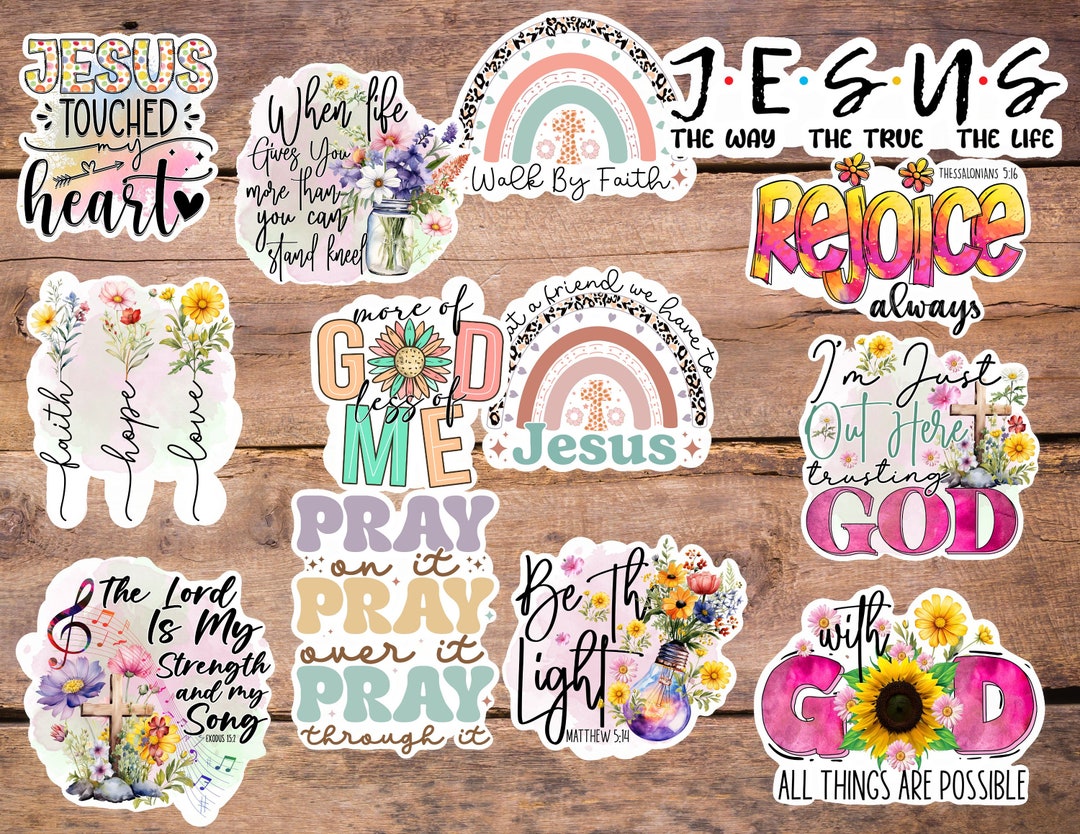 JESUS
TOUCHED
my
heart
When life
Gives You
more than
you can
stand kneel
Walk By Faith
J·E·S·U·S
THE WAY THE TRUE THE LIFE
THESSALONIANS 5:16
Rejoice
always
faith
hope
love
more of
GOD
less of
ME
at a friend we have to
Jesus
I'm Just
Out Here
trusting
GOD
The Lord
Is My
Strength
and my
Song
EXODUS 15:2
PRAY
on it
PRAY
over it
PRAY
through it
Be Th
Light
MATTHEW 5:14
with
GOD
ALL THINGS ARE POSSIBLE